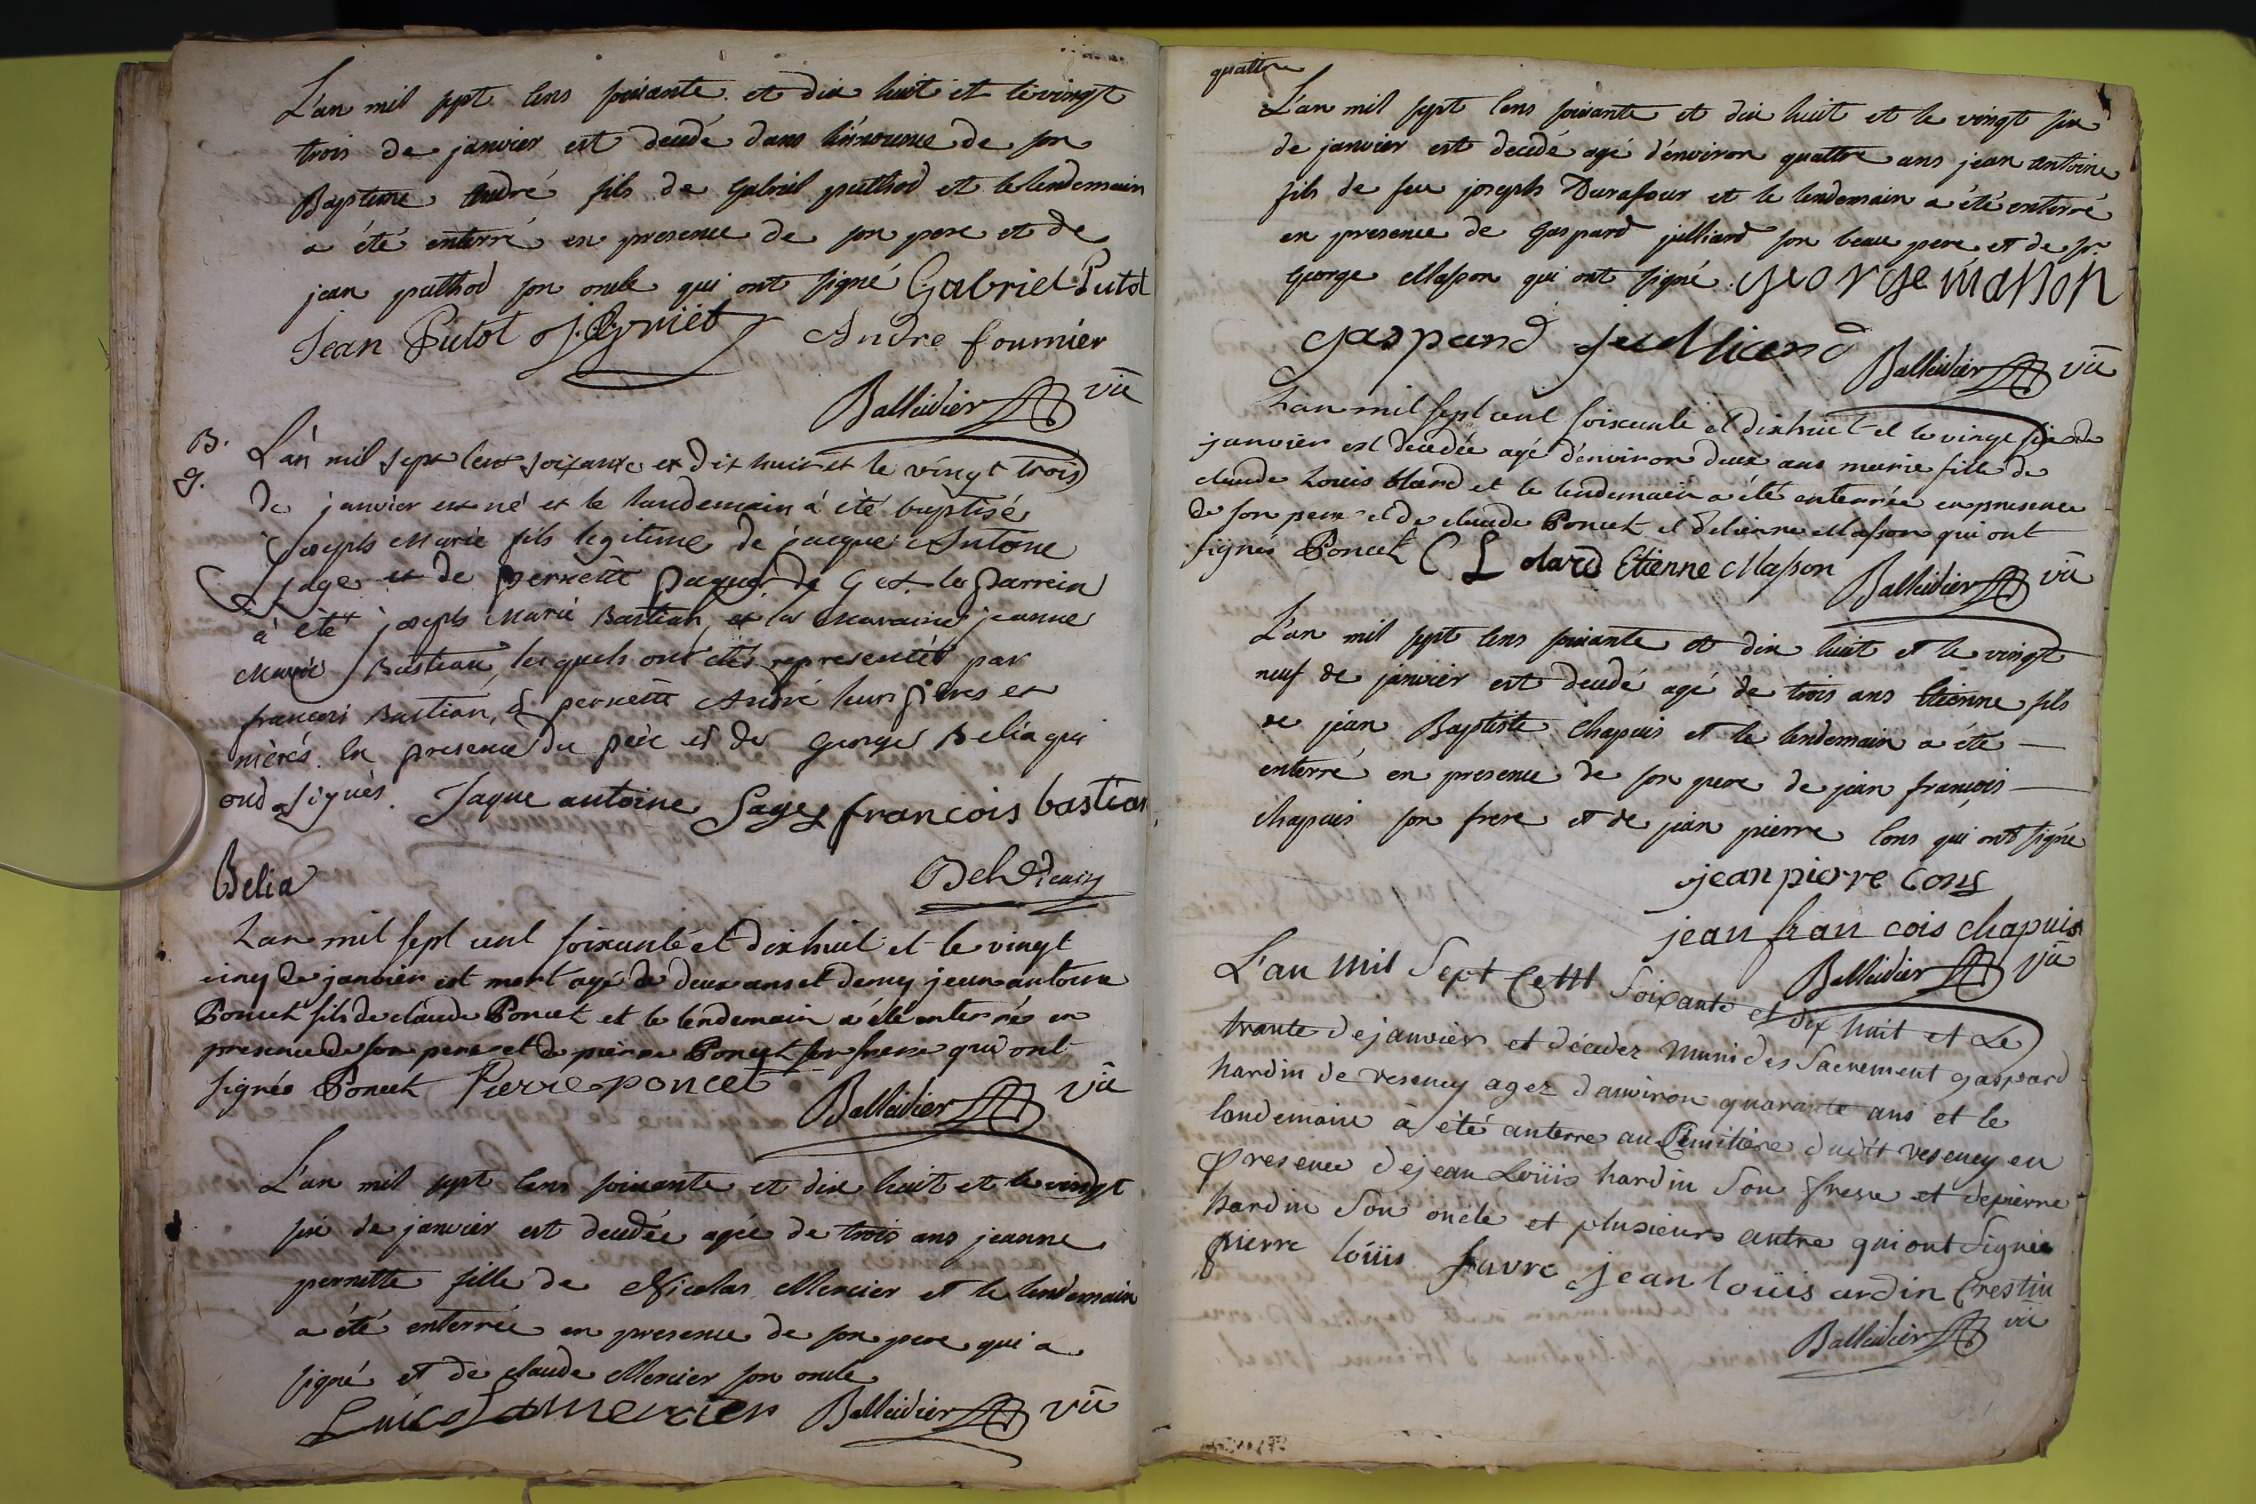 L'an mil sept cens soixante et dix huit et le vingt
trois de janvier est decedé dans l'innocence de son
Baptême André fils de Gabriel puthod et le lendemain
a été enterré en presence de son pere et de
jean puthod son oncle qui ont signé Gabriel Putod
Jean Putot André fournier
Balleidier vic
B.
g.
L'an mil sept cent soixante et dix huit et le vingt trois
de janvier est né et le landemain á été baptisé
joseph Marie fils legitime de jacque Antoine
Sage et de pernette paquet de Gex. le parrein
à été joseph Marie Bastian, et la Maraine jeanne
Marie Bastian, lesquels ont étés representés par
francois Bastian, et pernette André leurs péres et
mères. en presence du père et de George Belia qui
ond signés. Jaque antoine Sage francois bastian
Belia
Lan mil sept cent soixante et dix huit et le vingt
cinq de janvier est mort agé de deux ans et demy jean antoine
Poncet fils de claude Poncet et le lendemain a été enterrés en
presence de son pere et de pierre Poncet son frere qui ont
signés Poncet Pierre poncet Balleidier vic
L'an mil sept cens soixante et dix huit et le vingt
six de janvier est decedée agée de trois ans jeanne
pernette fille de Nicolas Mercier et le lendemain
a été enterrée en presence de son pere qui a
signé et de claude Mercier son oncle
Balleidier vic
quattre
L'an mil sept cens soixante et dix huit et le vingt six
de janvier est decedé agé d'environ quattre ans jean antoine
fils de feu joseph Durafour et le lendemain a été enterré
en presence de Gaspard julliard son beau pere et de sr
George Masson qui ont signé. George masson
gaspard juilliard Balleidier vic
Lan mil sept cent soixante et dix huit et le vingt six de
janvier est decedée agé d'environ deux ans marie fille de
claude Louis olard et le lendemain a été enterrée en presence
de son pere et de claude Poncet et d'etienne Masson qui ont
signés Poncet C L olard Etienne Masson Balleidier vic
L'an mil sept cens soixante et dix huit et le vingt
neuf de janvier est decedé agé de trois ans Etienne fils
de jean Baptiste Chapuis et le lendemain a été
enterré en presence de son pere de jean françois
Chapuis son frere et de jean pierre Cons qui ont signé
jean pierre Cons
jean fran cois chapuis
Balleidier vic
L'an mil Sept Cent Soixante et dix huit et Le
trante de janvier et décedez muni des Sacrement gaspard
hardin de vesency agez d'anviron quarante ans et le
landemain à été anterre au Cimitière dudit vesency en
presence de jean Loüis hardin Son frere et de pierre
hardin Son oncle et plusieurs autre qui ont Signés
pierre loüis favre jean loüis ardin Crestin
Balleidier vic